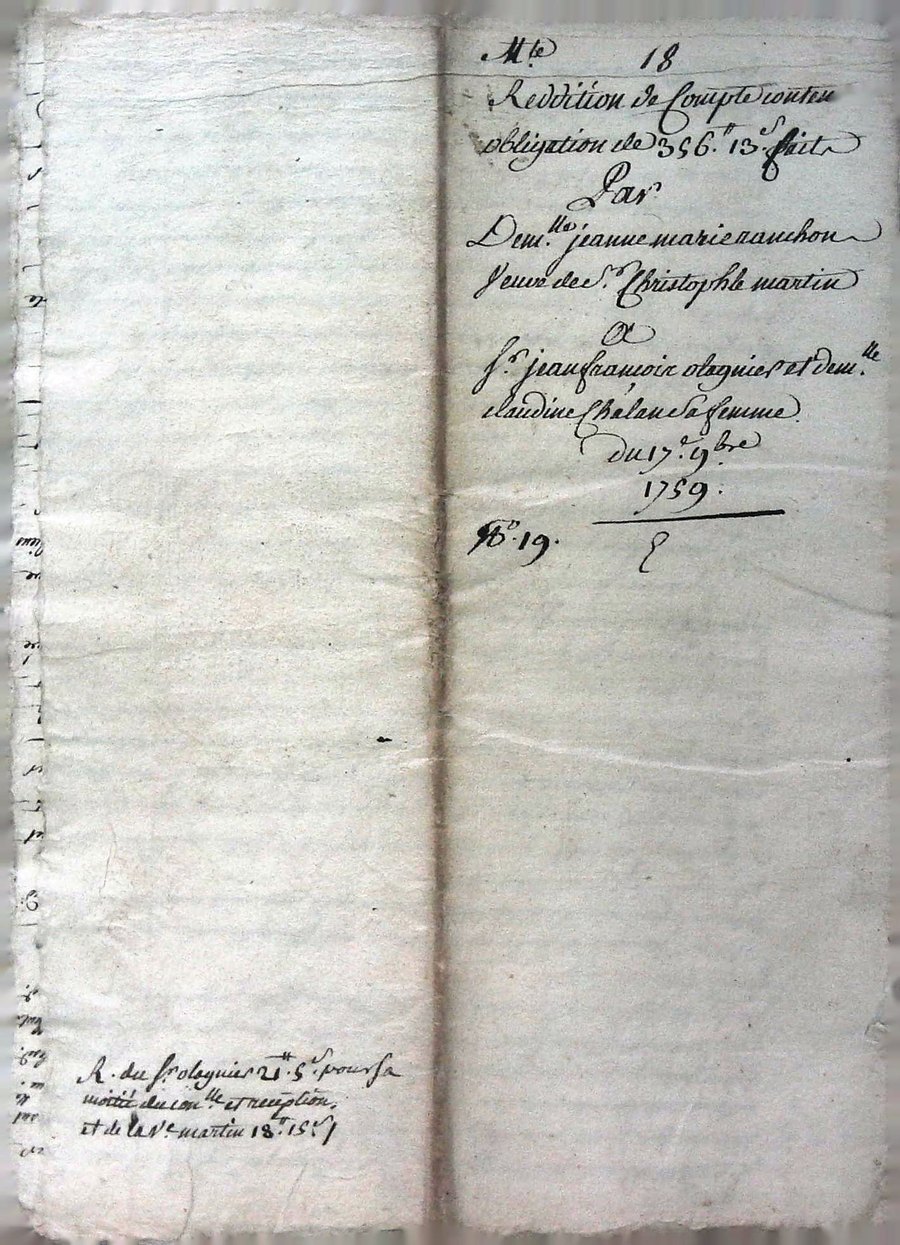 M.te 18
Reddition de Compte conten
obligation de 356.tt 13.s fait
Par
Dem.lle jeanne marie ranchon
Veuve de S.r Christophle martin
a
S.r jean francois olagnier et dem.lle
claudine Chalan Sa femme
du 17.e 9.bre
1759.
N.o 19.
R. du S.r olagnier 21.tt 5.s pour Sa
moitié du con.lle et reception,
et de la v.e martin 18.tt 15.s